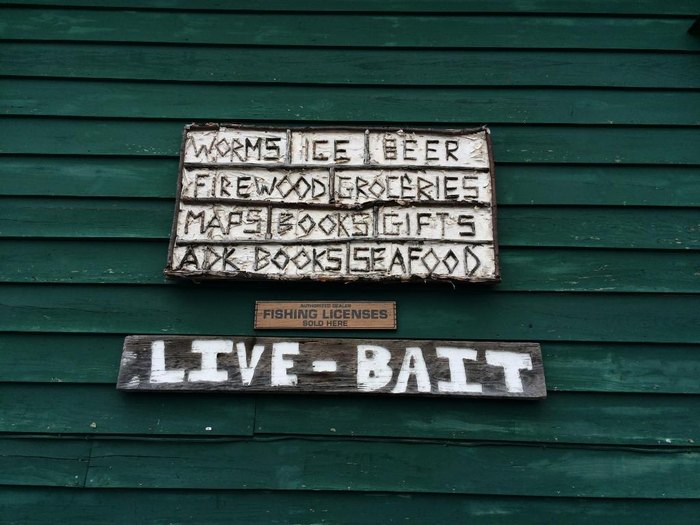 WORMS ICE BEER
FIREWOOD GROCERIES
MAPS BOOKS GIFTS
ADK BOOKS SEAFOOD
AUTHORIZED DEALER
FISHING LICENSES
SOLD HERE
LIVE-BAIT